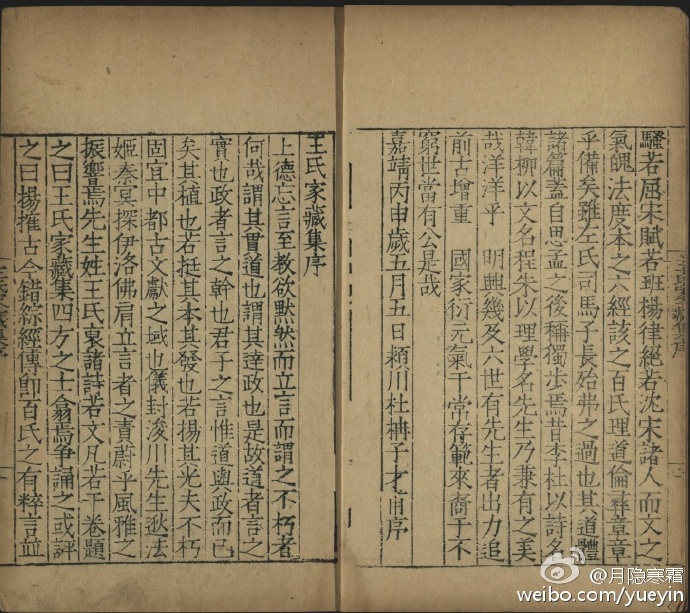 騷若屈宋賦若班楊律絕若沈宋諸人而文之
氣魄法度本之六經該之百氏理道倫彛章章
乎備矣雖左氏司馬子長殆弗之過也其道體
諸篇蓋自思孟之後稱獨步焉昔李杜以詩名
韓柳以文名程朱以理學名先生乃兼有之美
哉洋洋乎　明興幾及六世有先生者出力追
前古增重　國家衍元氣于常存範來裔于不
窮世當有公是哉
嘉靖丙申歲五月五日潁川杜柟子才甫序
王氏家藏集序
上德忘言至教欲默然而立言而謂之不朽者
何哉謂其貫道也謂其達政也是故道者言之
實也政者言之幹也君子之言惟道與政而已
矣其植也若挺其本其發也若揚其光夫不朽
固宜中都古文獻之域也儀封浚川先生逖法
姬秦冥探伊洛佛肩立言者之責蔚乎風雅之
振響焉先生姓王氏裒諸詩若文凡若干卷題
之曰王氏家藏集四方之士翕焉爭誦之或評
之曰揚搉古今錯綜經傳卽百氏之有粹言並
@月隐寒霜
weibo.com/yueyin